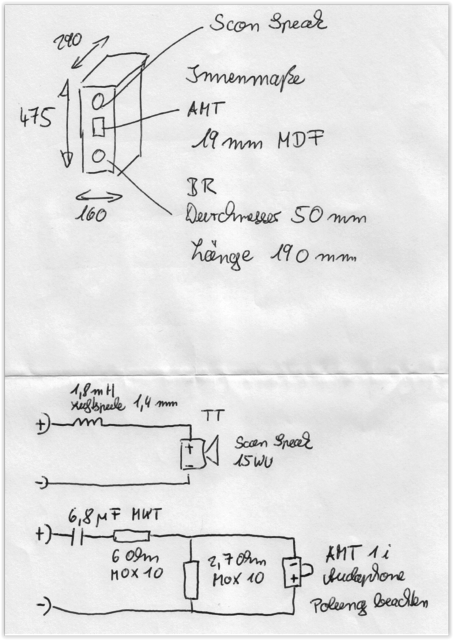 290
Scan Speak
Innenmaße
475
AMT
19 mm MDF
BR
160
Durchmesser 50 mm
Länge 190 mm
1,8 mH
Luftspule 1,4 mm
TT
+
+
Scan Speak
15WU
-
-
6,8 µF MWT
+
6 Ohm
MOX 10
2,7 Ohm
MOX 10
-
+
AMT 1 i
Audaphone
Polung beachten
-